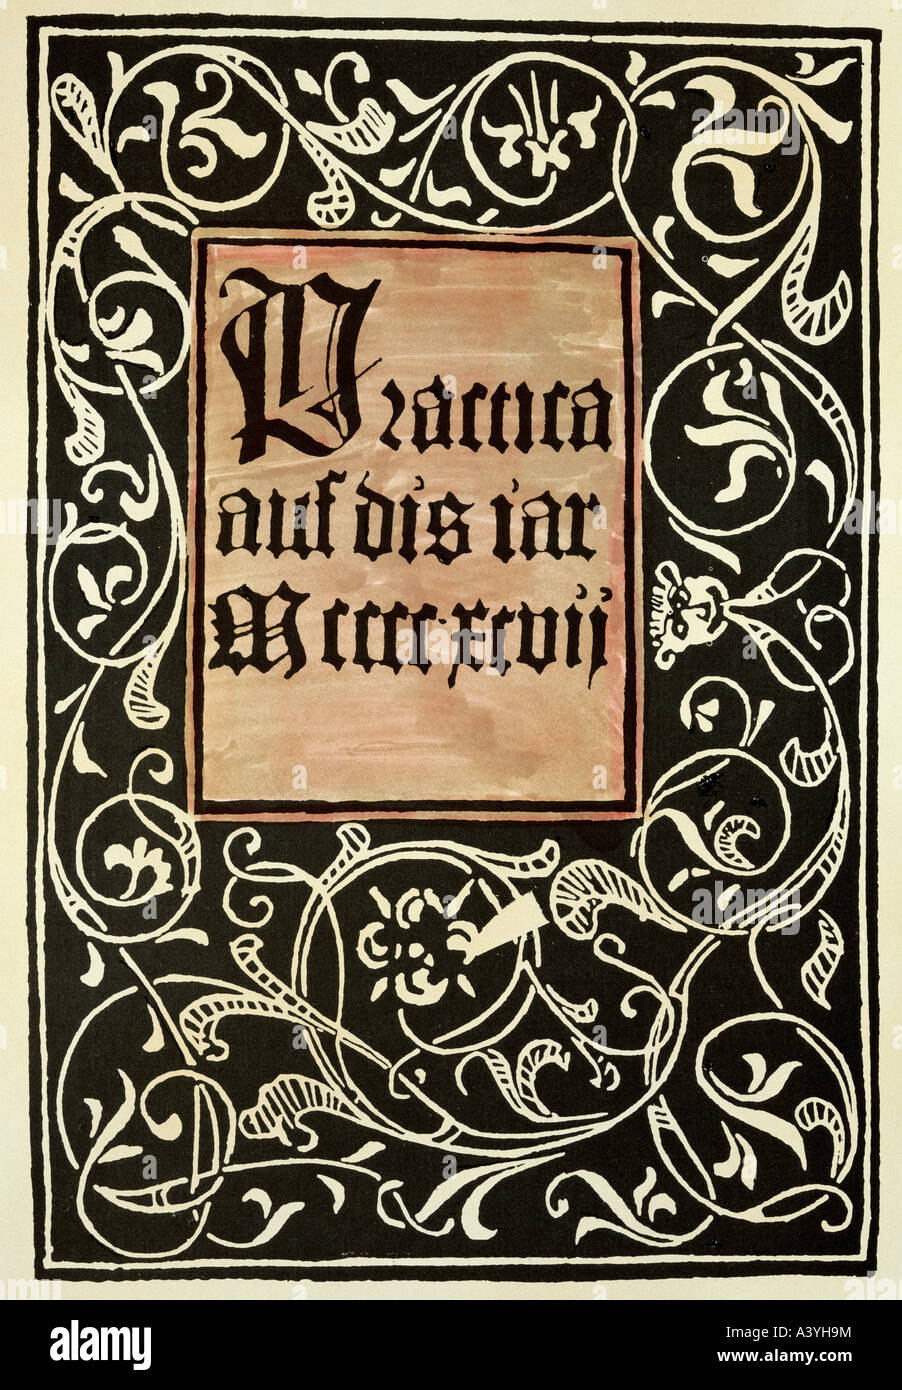 Practica
auf dis iar
Mcccc·xcvij
alamy
Image ID: A3YH9M
www.alamy.com